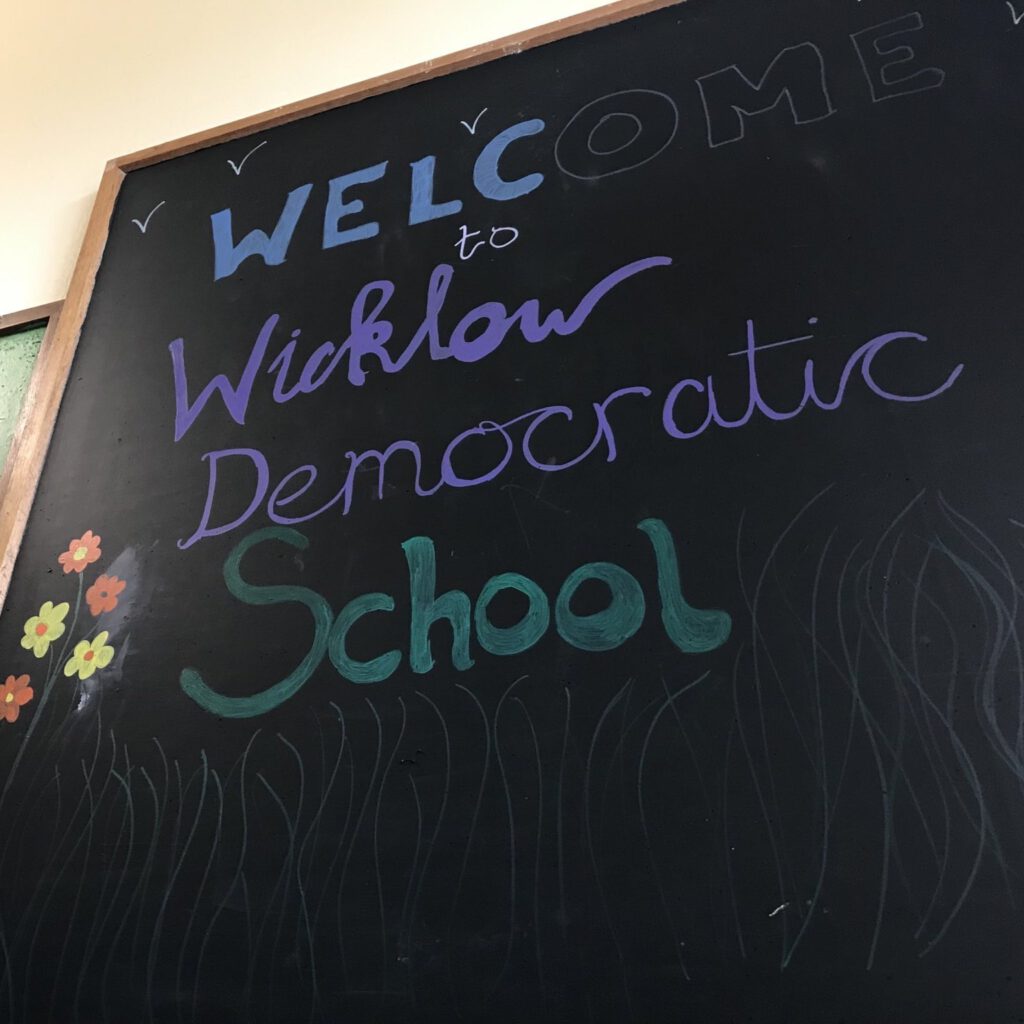 WELCOME
to
Wicklow
Democratic
School